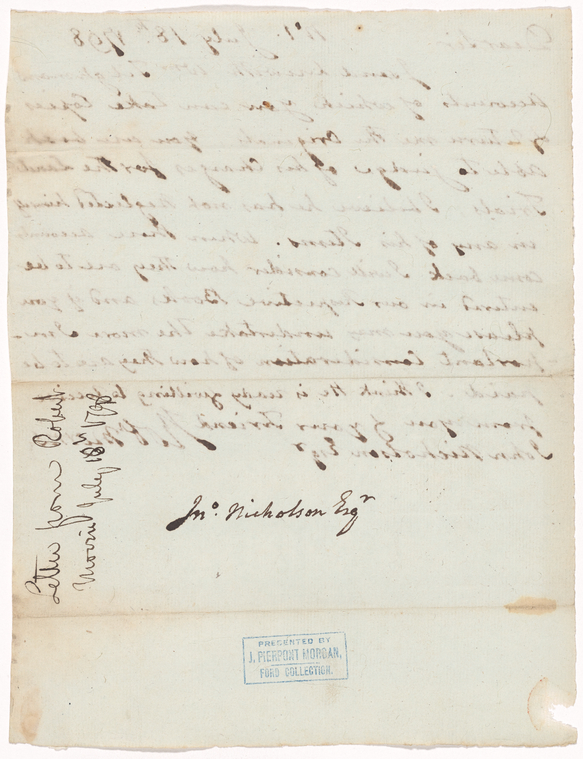 Dear Sir July 18th 1798
I send herewith Wm Tilghmans
accounts of which you can take Copies
& return me the Originals you are best
able to judge of his Charges for the Land
Trials I believe he has not neglected
in any of his Items. When these accounts
come back I will consider how they are to be
entered in our respective Books and if you
please you may undertake the more Im-
portant Consideration of how they are to be
paid. I think He is ready & willing to
from you & your Friend
John Nicholson Esqr
Letter from Robert
Morris July 18th 1798
Jno. Nicholson Esqr
PRESENTED BY
J. PIERPONT MORGAN.
FORD COLLECTION.